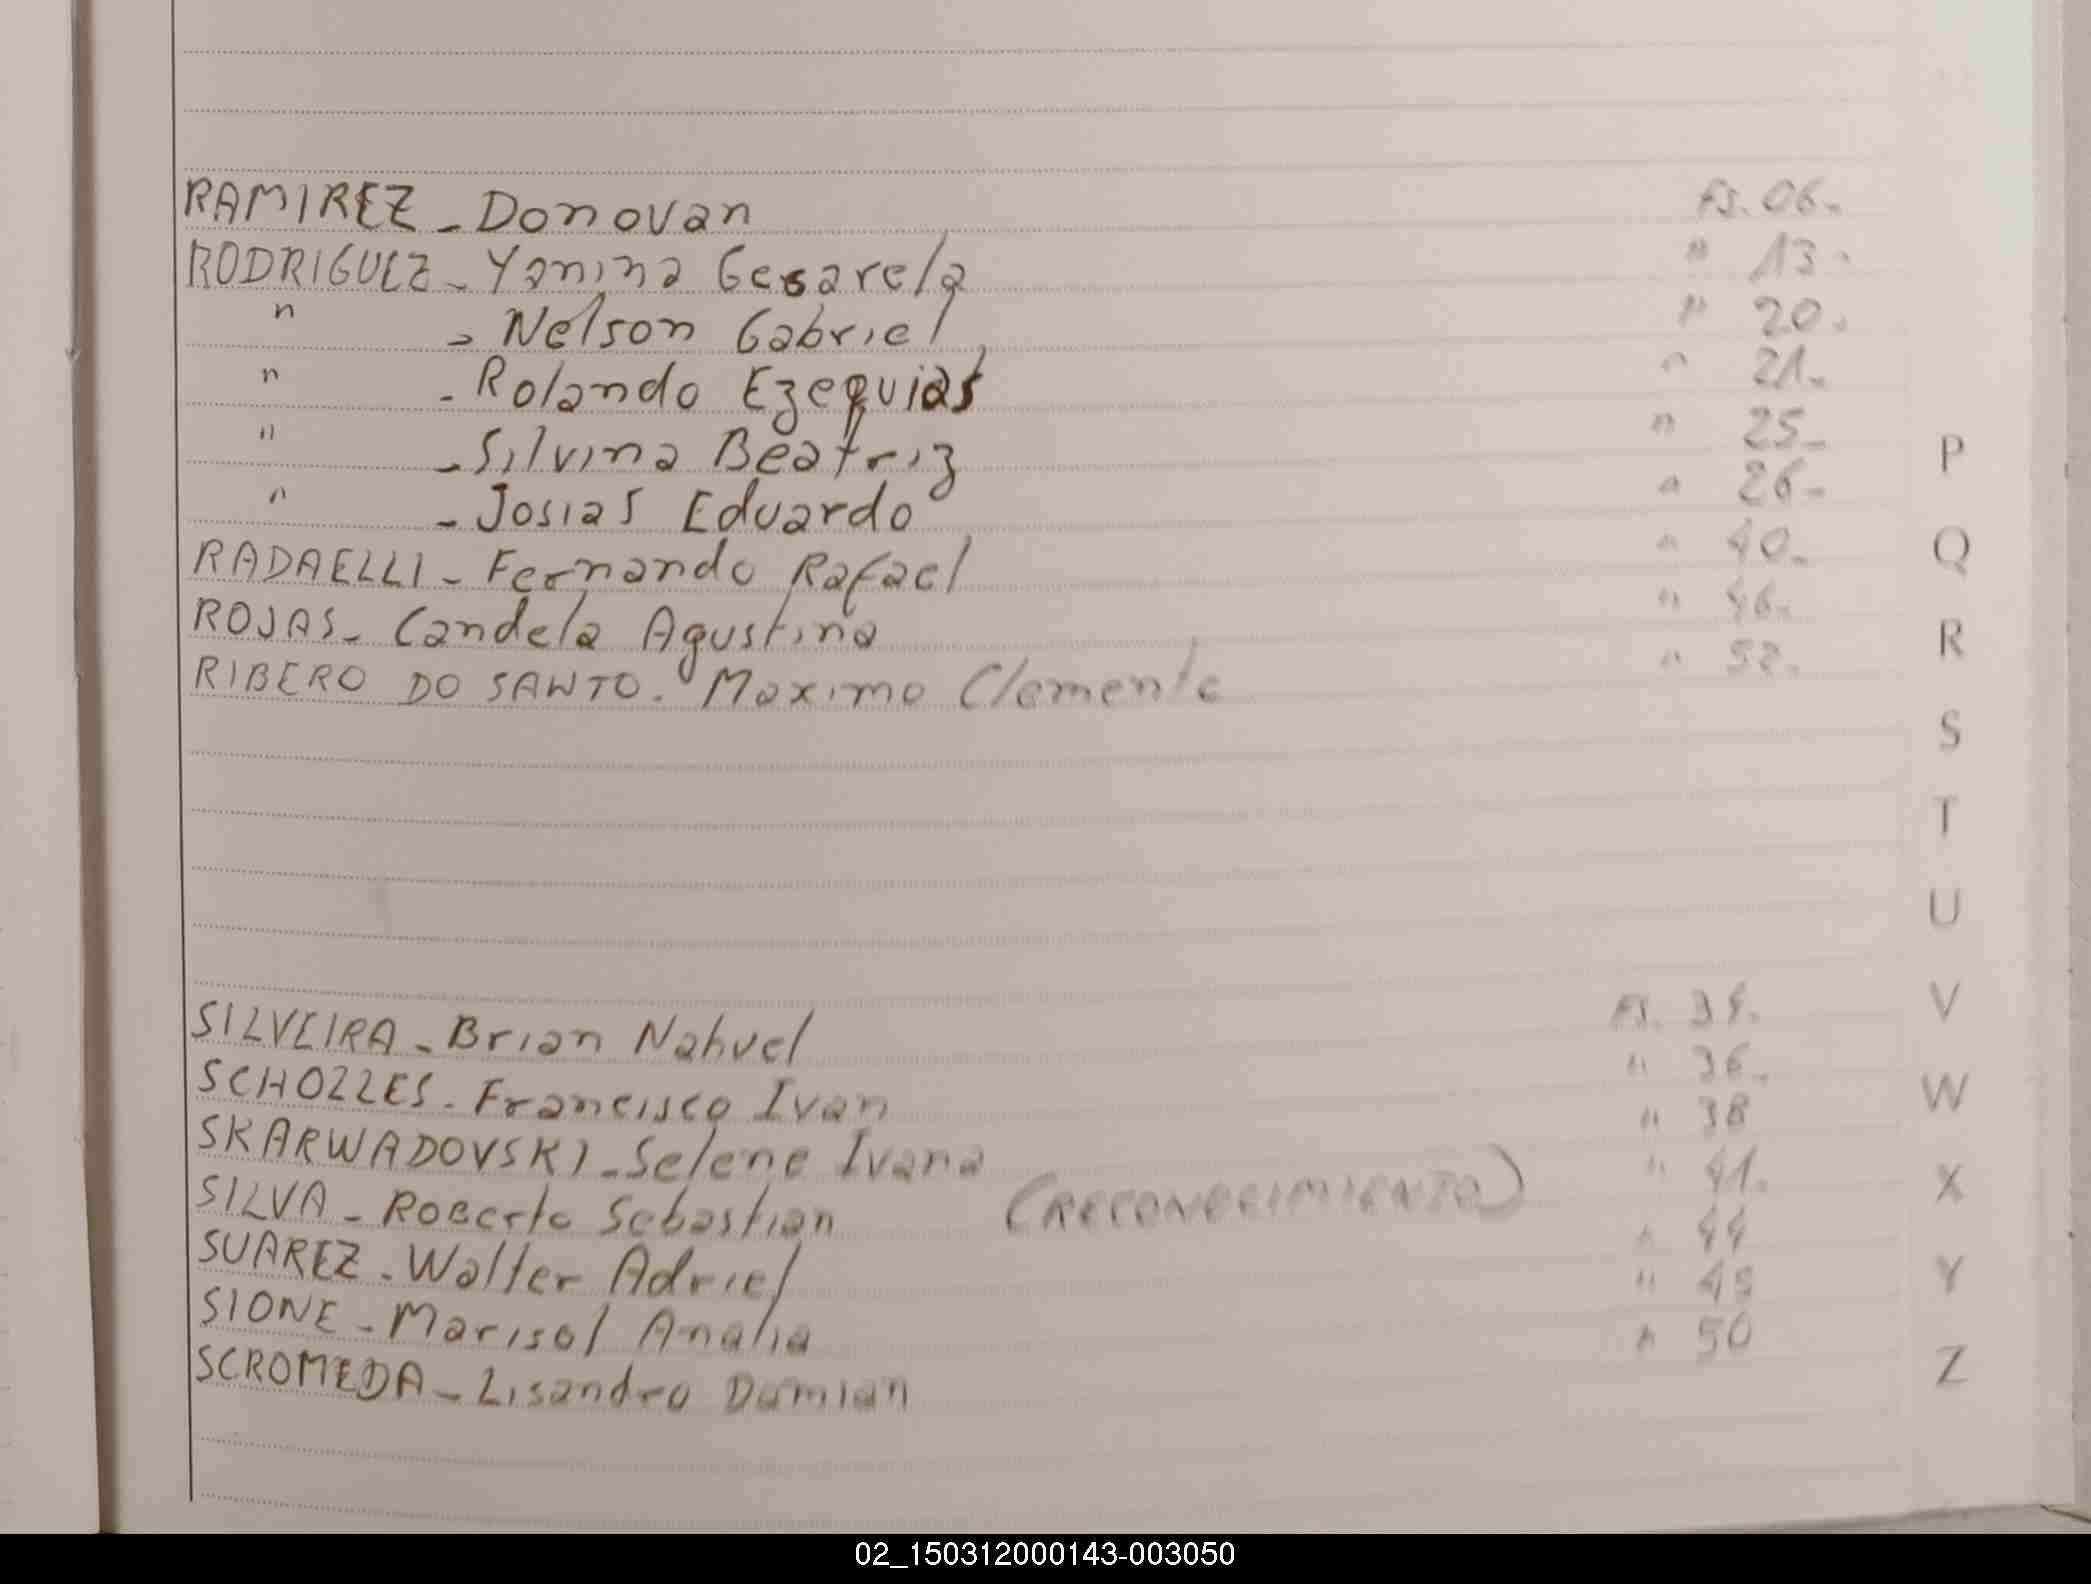 RAMIREZ - Donovan Fs. 06.
RODRIGUEZ - Yanina Gesarela " 13.
" - Nelson Gabriel " 20.
" - Rolando Ezequias " 21.
" - Silvina Beatriz " 25.
" - Josias Eduardo " 26.
RADAELLI - Fernando Rafael " 40.
ROJAS - Candela Agustina " 46.
RIBERO DO SANTO. Maximo Clemente " 52.
SILVEIRA - Brian Nahuel Fs. 34.
SCHOLLES. Francisco Ivan " 36.
SKARWADOVSKI - Selene Ivana " 38
SILVA - Roberto Sebastian (RECONOCIMIENTO) " 41.
SUAREZ - Walter Adriel " 44
SIONE - Marisol Analia "
SCROMEDA - Lisandro Damian " 50
P
Q
R
S
T
U
V
W
X
Y
Z
02_150312000143-003050